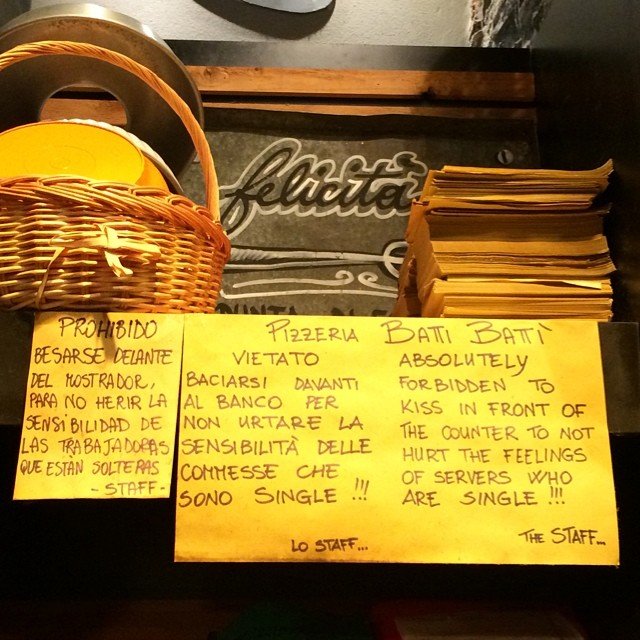 felicità
PROHIBIDO
BESARSE DELANTE
DEL MOSTRADOR,
PARA NO HERIR LA
SENSIBILIDAD DE
LAS TRABAJADORAS
QUE ESTAN SOLTERAS
- STAFF -
PIZZERIA BATTI BATTÌ
VIETATO
BACIARSI DAVANTI
AL BANCO PER
NON URTARE LA
SENSIBILITÀ DELLE
COMMESSE CHE
SONO SINGLE !!!
LO STAFF...
ABSOLUTELY
FORBIDDEN TO
KISS IN FRONT OF
THE COUNTER TO NOT
HURT THE FEELINGS
OF SERVERS WHO
ARE SINGLE !!!
THE STAFF...